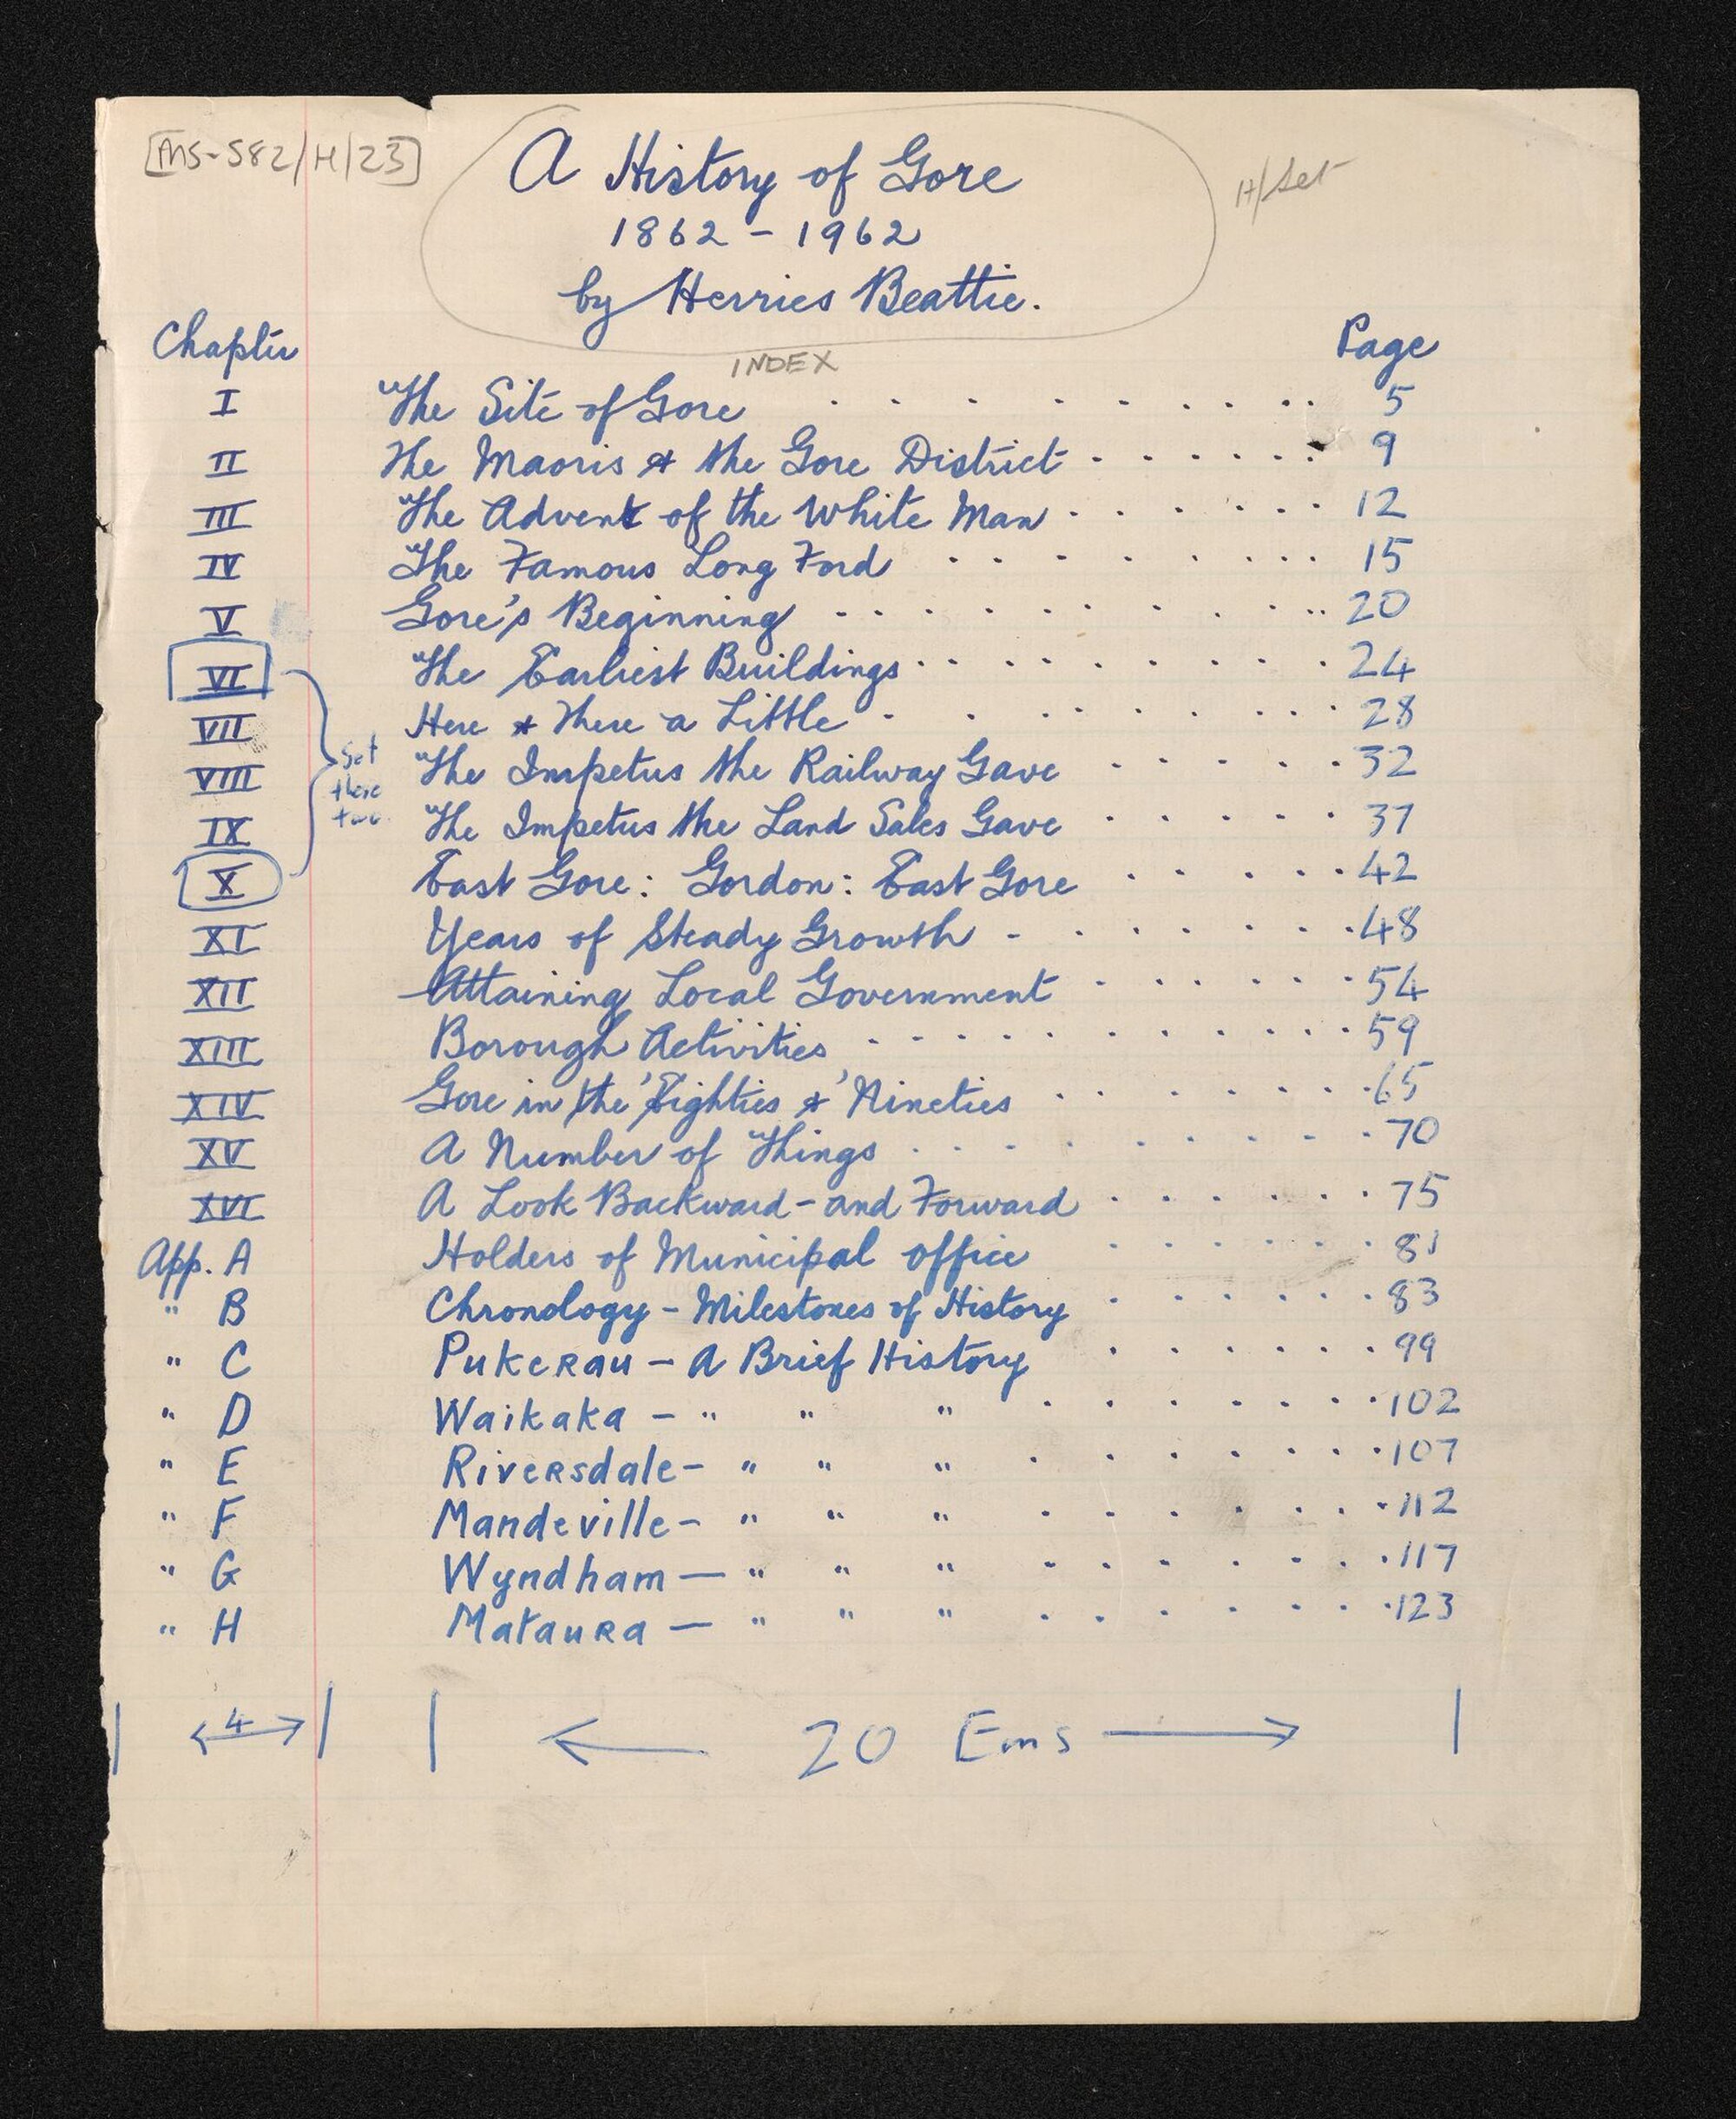 [MS-582/H/23]
A History of Gore
H/Set
1862 - 1962
by Herries Beattie.
Chapter Page
INDEX
I The Site of Gore . . . . . . . . . . 5
II The Maoris & the Gore District . . . . . . 9
III The Advent of the White Man . . . . . . . 12
IV The Famous Long Ford . . . . . . . . . 15
V Gore's Beginning . . . . . . . . . . 20
VI The Earliest Buildings . . . . . . . . . . 24
VII Here & There a Little . . . . . . . . . . 28
set
these
two
VIII The Impetus the Railway Gave . . . . . 32
IX The Impetus the Land Sales Gave . . . . . 37
X East Gore: Gordon: East Gore . . . . . 42
XI Years of Steady Growth - . . . . . . . 48
XII Attaining Local Government . . . . . . 54
XIII Borough Activities . . . . . . . . . . . 59
XIV Gore in the 'Eighties & 'Nineties . . . . . . . 65
XV A Number of Things . . . . . . . . . 70
XVI A Look Backward - and Forward . . . . . . 75
App. A Holders of Municipal Office . . . . . . 81
" B Chronology - Milestones of History . . . . . . 83
" C Pukerau - A Brief History . . . . . . 99
" D Waikaka - " " " . . . . . . . 102
" E Riversdale - " " " . . . . . . . 107
" F Mandeville - " " " . . . . . . . 112
" G Wyndham - " " " . . . . . . . 117
" H Mataura - " " " . . . . . . . 123
4 20 Ems